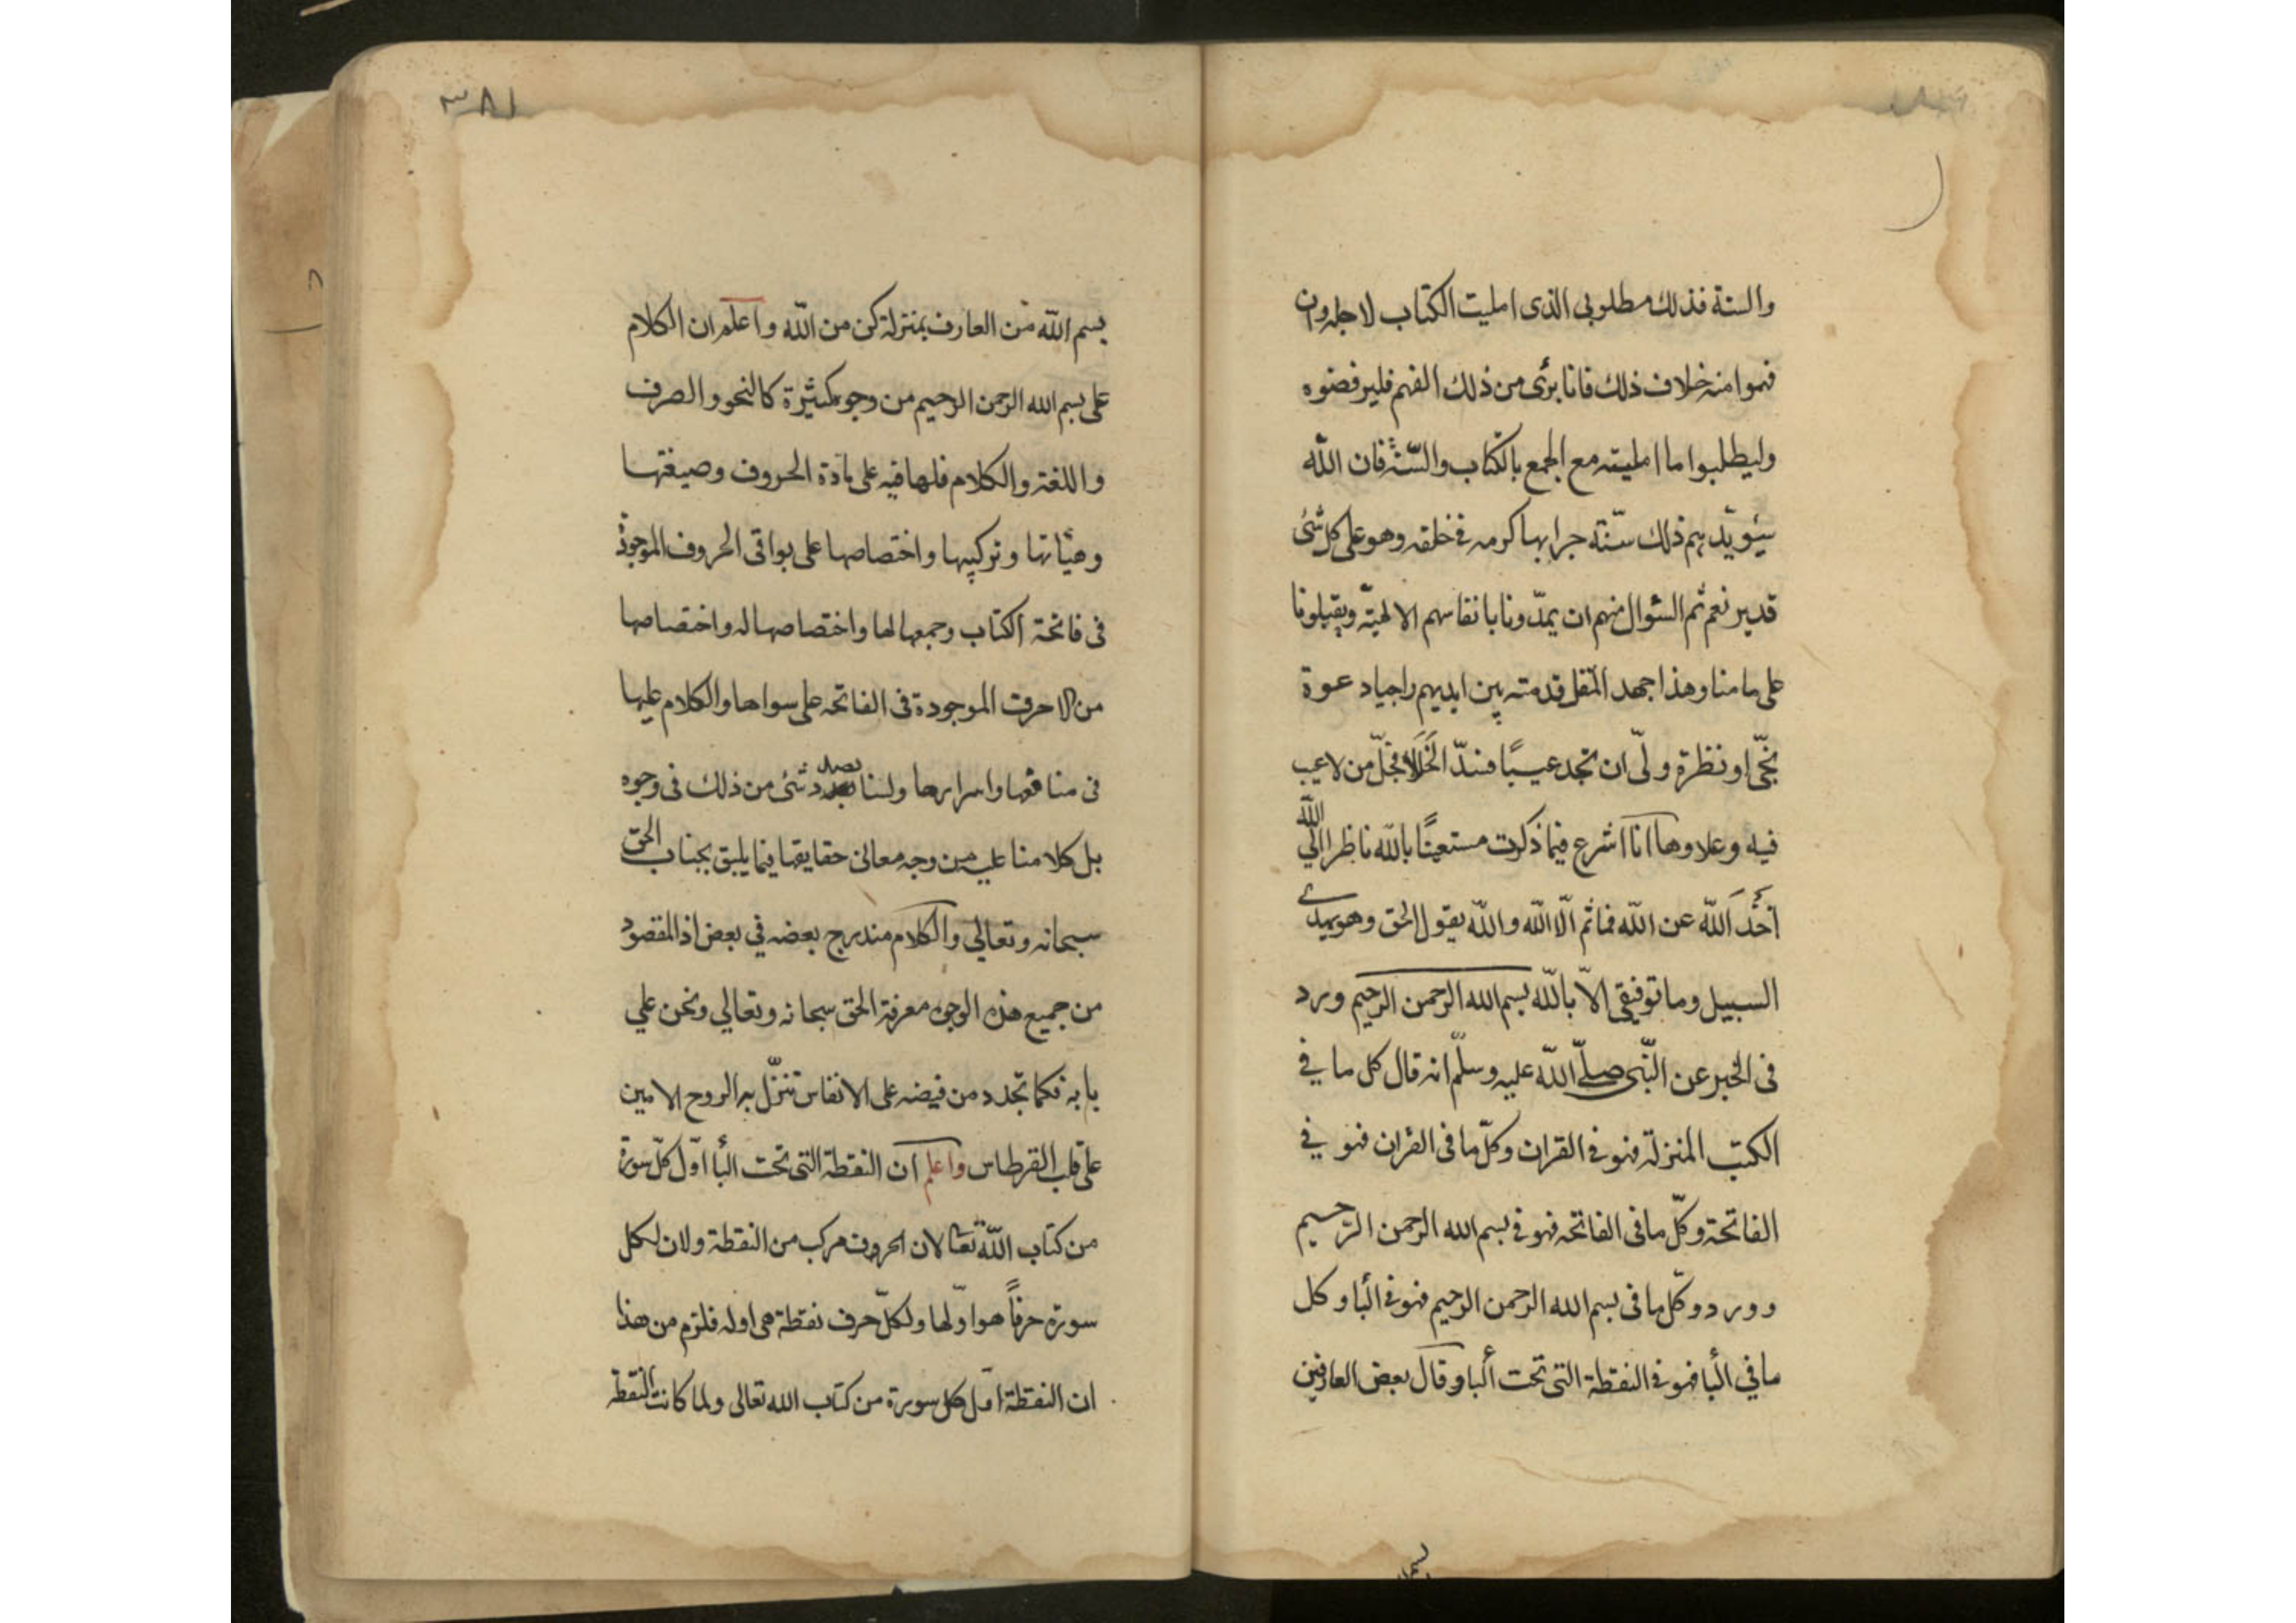 والسنة فذلك مطلوبي الذى امليت الكتاب لاجله وان
فهموا منه خلاف ذلك فانا برئ من ذلك الفهم فليرفضوه
وليطلبوا ما امليته مع الجمع بالكتاب والسّنّة فان الله
سيؤيّد بهم ذلك سنّة جرا بها كرمه فى خلقه وهو على كل شئ
قدير نعم ثم السؤال منهم ان يمدّونا بانفاسهم الالهيّة ويقبلونا
على ما منا وهذا جهد المقل قدمته بين ايديهم راجيا دعوة
او نظرة ولّى ان تجد عيبًا فسدّ الخَلَلا فجلّ من لاعيب
فيه وعلا وها انا اشرع فيما ذكرت مستعينًا بالله ناظرا الي الله
الله عن الله فما ثم الّا الله والله يقول الحق وهو يهدي
السبيل وما توفيقى الّا بالله بسم الله الرحمن الرحيم ورد
فى الخبر عن النّبى صلّے الله عليه وسلّم انه قال كل ما في
الكتب المنزلة فهو فى القران وكلّ ما فى القران فهو في
الفاتحة وكلّ ما فى الفاتحه فهو فى بسم الله الرحمن الرّحيم
وورد وكلّ ما فى بسم الله الرحمن الرحيم فهو فى البأ وكل
ما في البأ فهو فى النقطة التى تحت البأ وقال بعض العارفين
بسما
٣٨١
بسم الله من العارف بمنزلة كن من الله واعلم ان الكلام
على بسم الله الرحمن الرحيم من وجوه كثيرة كالنحو والصرف
واللغة والكلام فلها فيه على مادة الحروف وصيغتها
وهيئاتها وتركيبها واختصاصها على بواقى الحروف الموجودة
فى فاتحة الكتاب وجمعها لها واختصاصها له واختصاصها
من الاحرف الموجودة فى الفاتحه على سواها والكلام عليها
فى منافعها واسرارها ولسنا بصدد شئ من ذلك فى وجوه
بل كلامنا عليه من وجه معانى حقايقها فيما يليق بجناب الحق
سبحانه وتعالي والكلام مندرج بعضه في بعض اذ المقصود
من جميع هذه الوجوه معرفة الحق سبحانه وتعالي ونحن علي
بابه فكما تجدد من فيضه على الانفاس تنزّل به الروح الامين
على قلب القرطاس واعلم ان النقطة التى تحت البأ اوّل كلّ سورة
من كتاب الله تعا لان الحروف مركب من النقطة ولان لكل
سورة حرفاً هو اوّلها ولكلّ حرف نقطة هى اوله فلزم من هذا
ان النقطة اول كل سورة من كتاب الله تعالى ولما كانت النقطة